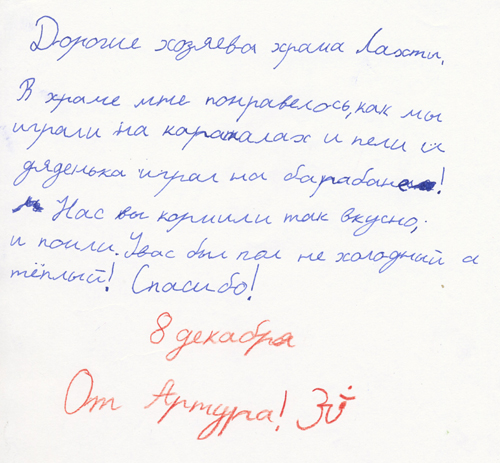 Дорогие хозяева храма Лахты,
В храме мне понравелось, как мы
играли на караталах и пели и
дяденька играл на барабане!
Нас вы кормили так вкусно,
и поили. У вас был пол не холодный а
тёплый! Спасибо!
8 декабря
От Артура! ॐ